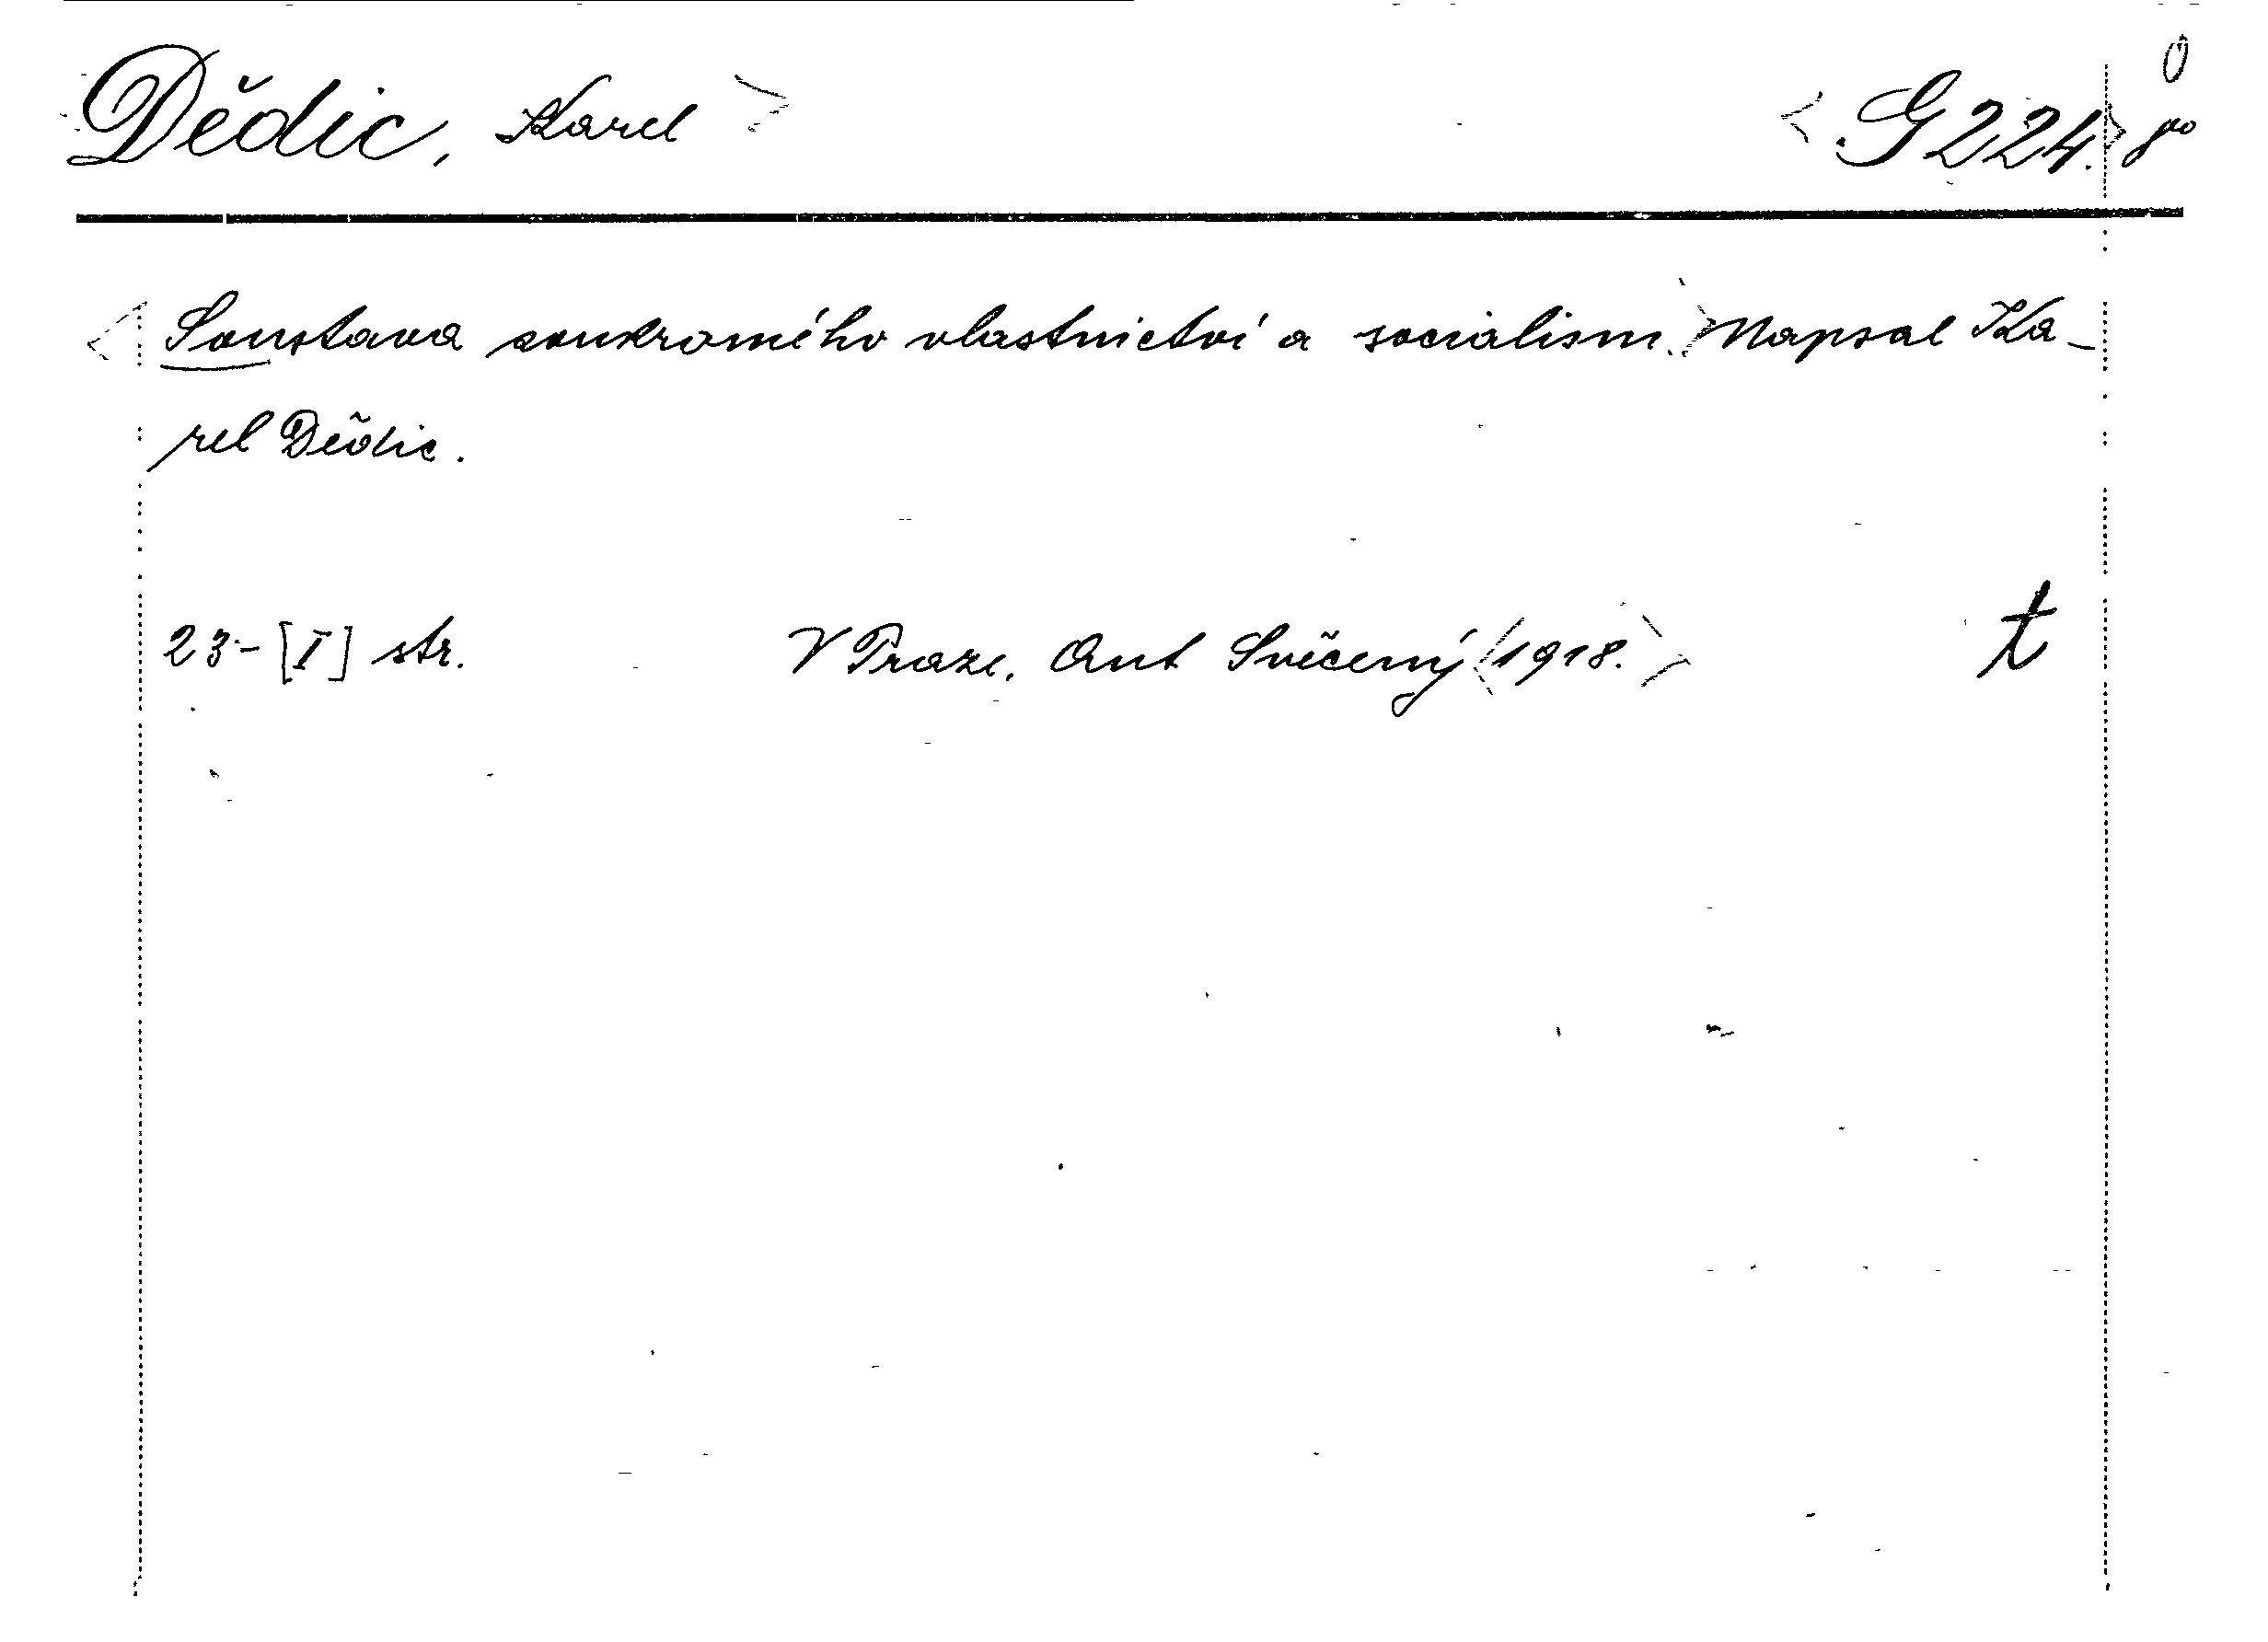 Dědic, Karel > < G 224. > 8⁰
< Soustava soukromého vlastnictví a socialism. > Napsal Ka-
rel Dědic.
23-[I] str. V Praze. Ant Svěcený < 1918. > t